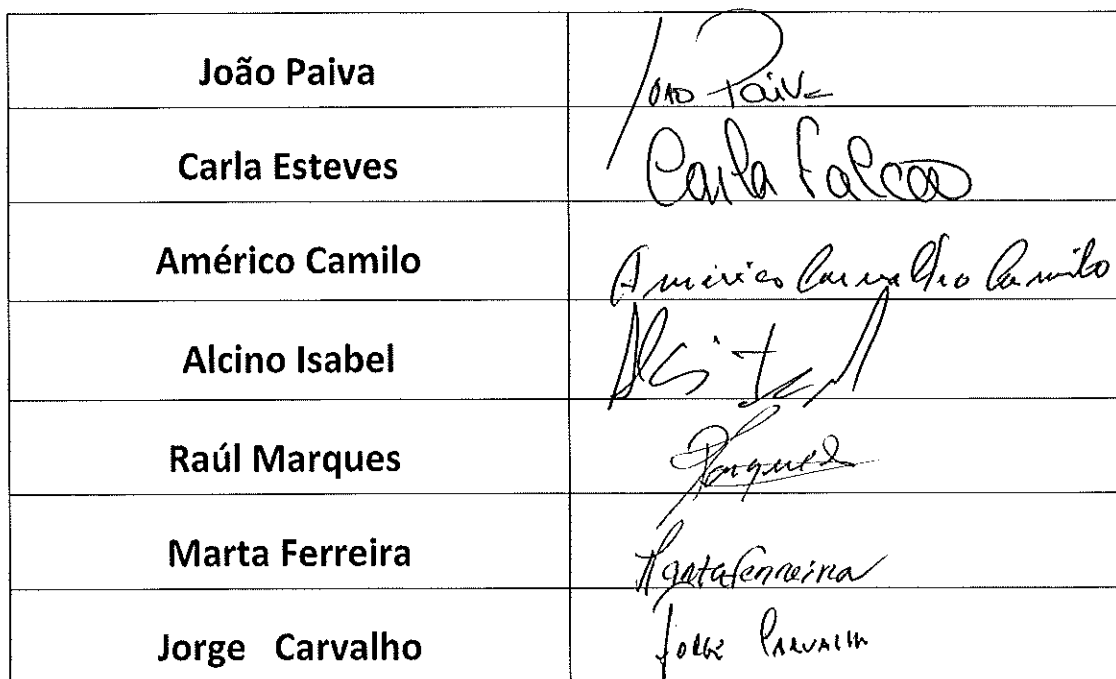 João Paiva João Paiva
Carla Esteves Carla Falcão
Américo Camilo Américo Carvalho Camilo
Alcino Isabel
Raúl Marques Marques
Marta Ferreira Marta Ferreira
Jorge Carvalho Jorge Carvalho